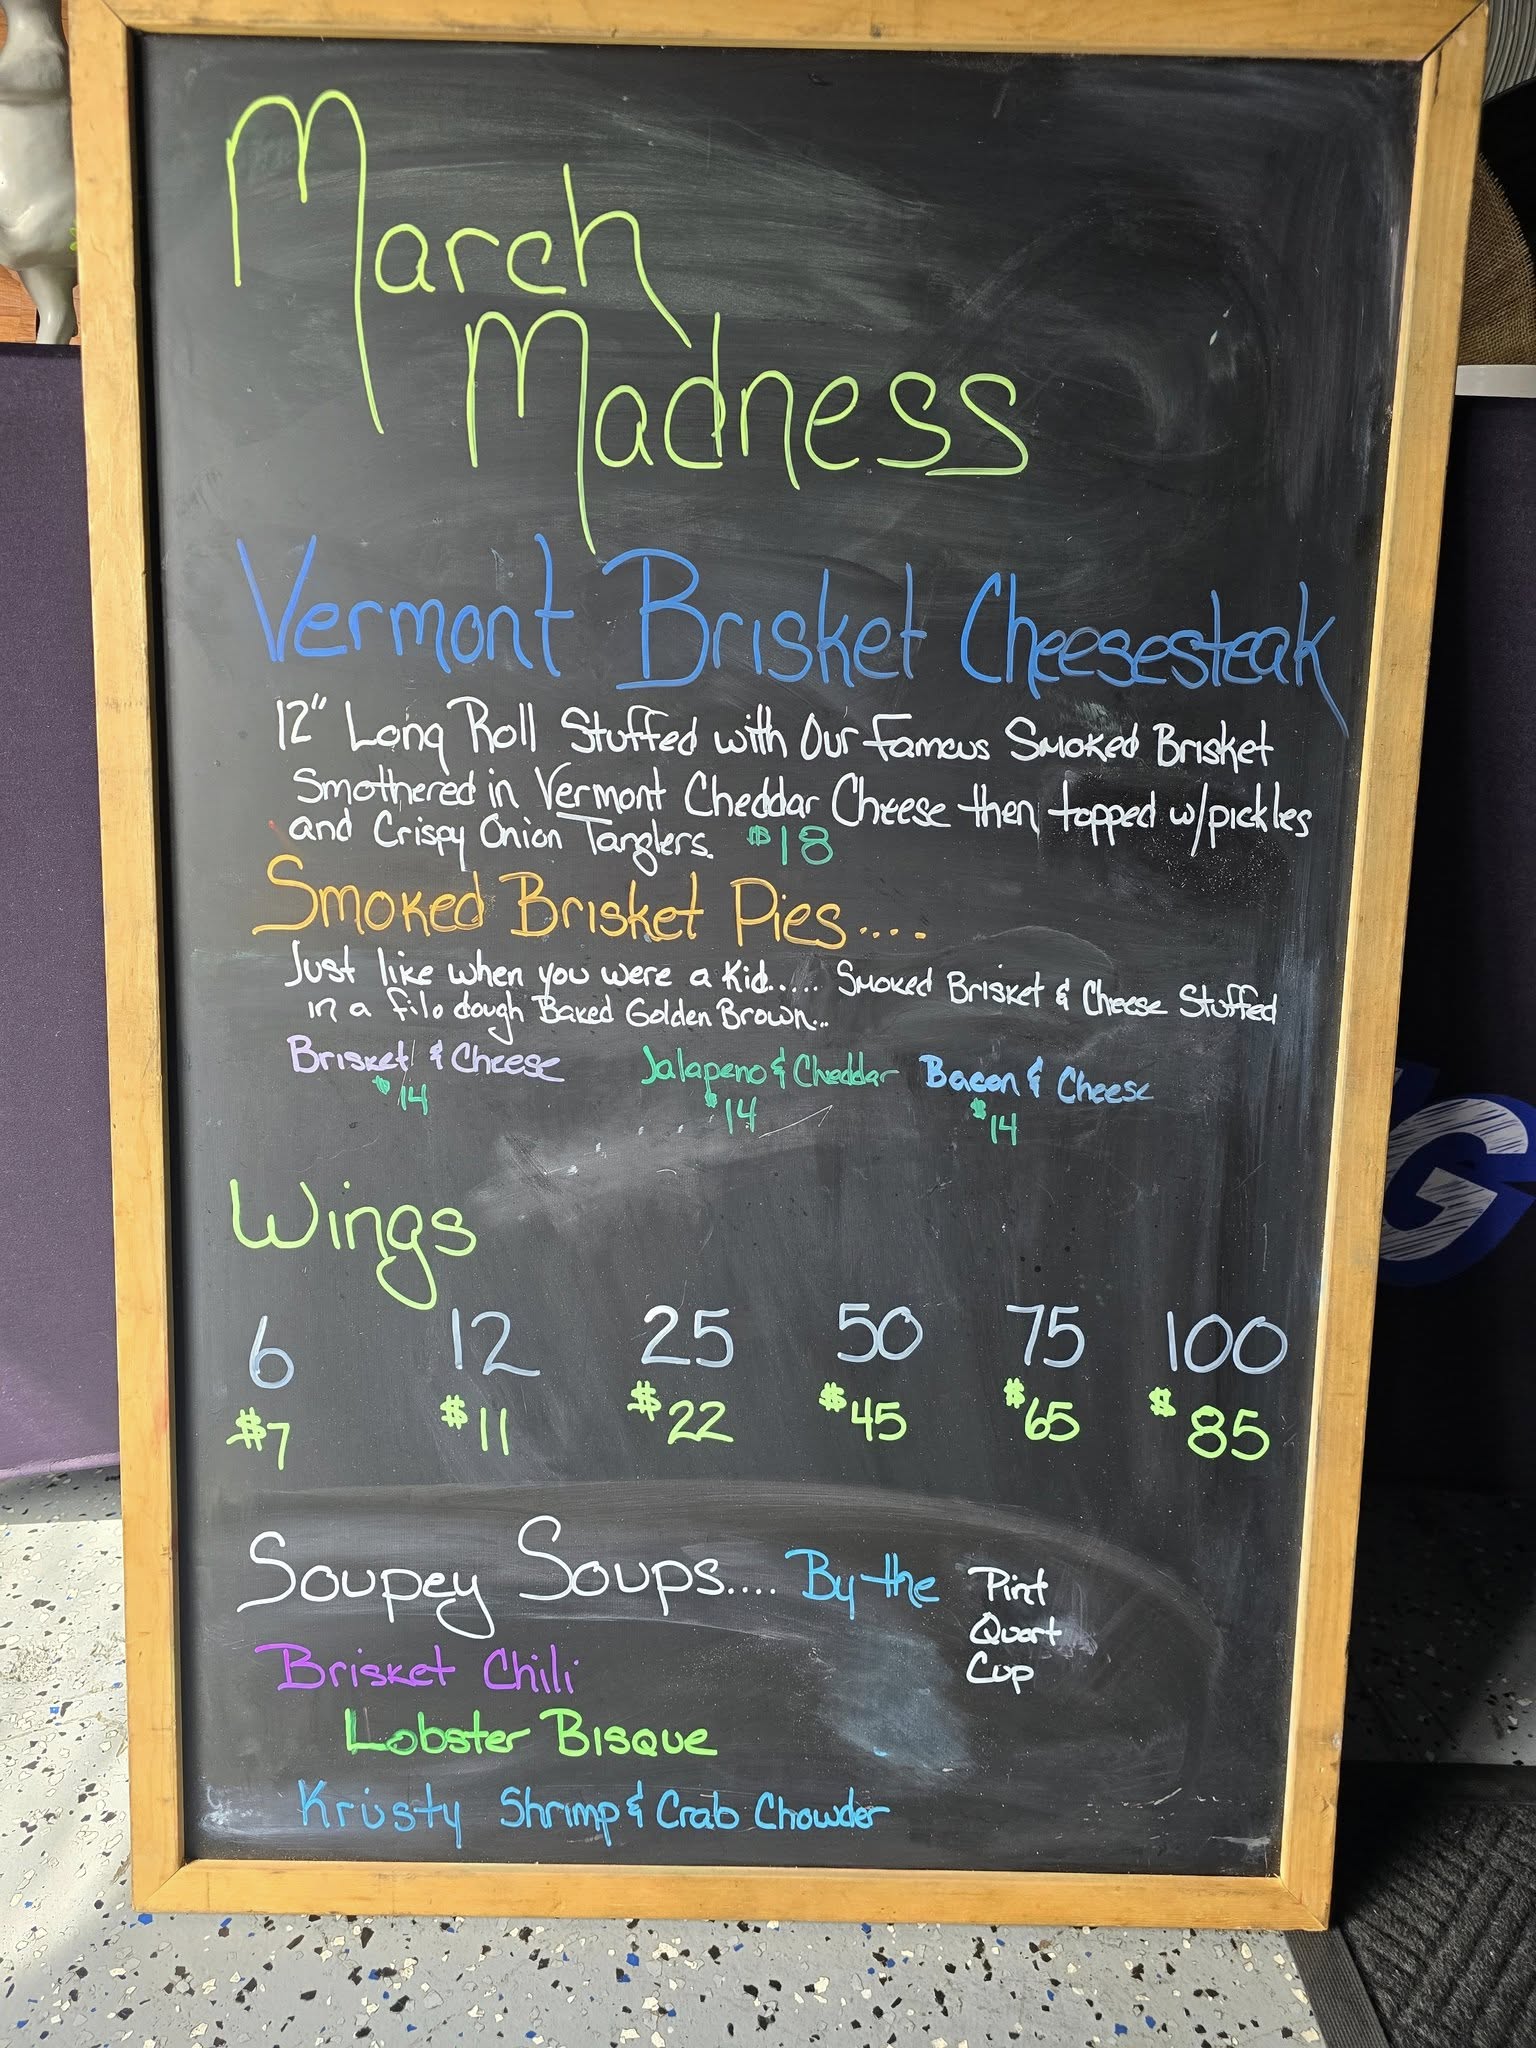 March
Madness
Vermont Brisket Cheesesteak
12" Long Roll Stuffed with Our Famous Smoked Brisket
Smothered in Vermont Cheddar Cheese then topped w/pickles
and Crispy Onion Tanglers. $18
Smoked Brisket Pies....
Just like when you were a Kid..... Smoked Brisket & Cheese Stuffed
in a filo dough Baked Golden Brown...
Brisket & Cheese Jalapeno & Cheddar Bacon & Cheese
$14 $14 $14
Wings
6 12 25 50 75 100
$7 $11 $22 $45 $65 $85
Soupey Soups.... By the Pint
Quart
Cup
Brisket Chili
Lobster Bisque
Krusty Shrimp & Crab Chowder
G